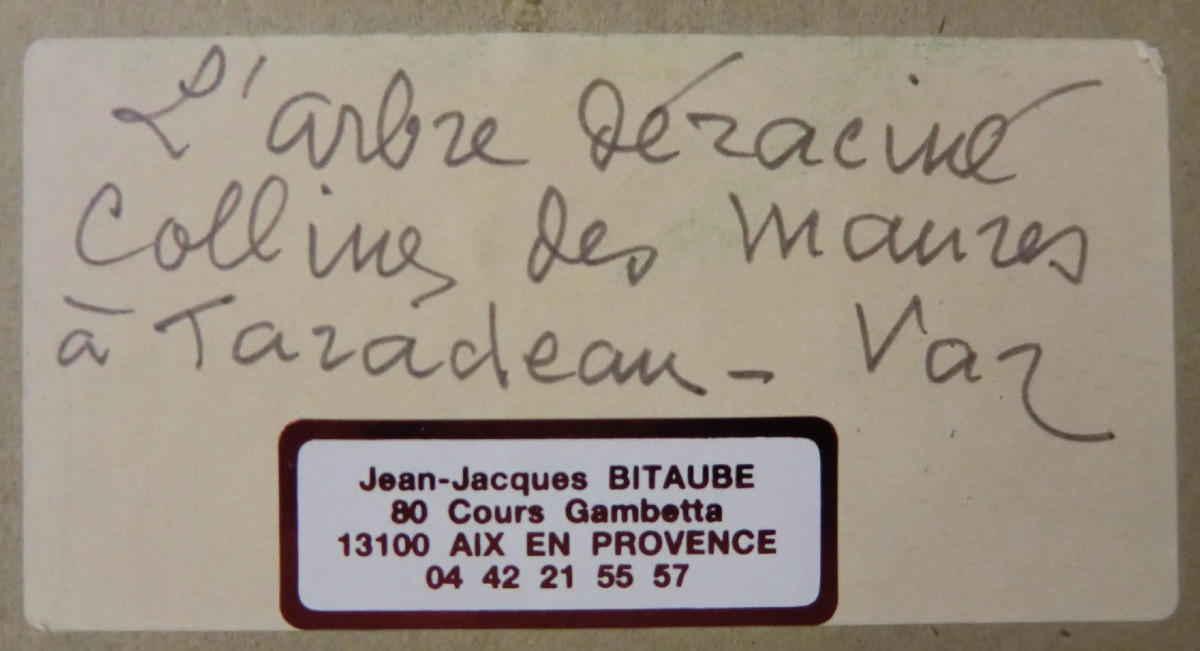 L'arbre déraciné
Collines des Maures
à Taradeau - Var
Jean-Jacques BITAUBE
80 Cours Gambetta
13100 AIX EN PROVENCE
04 42 21 55 57